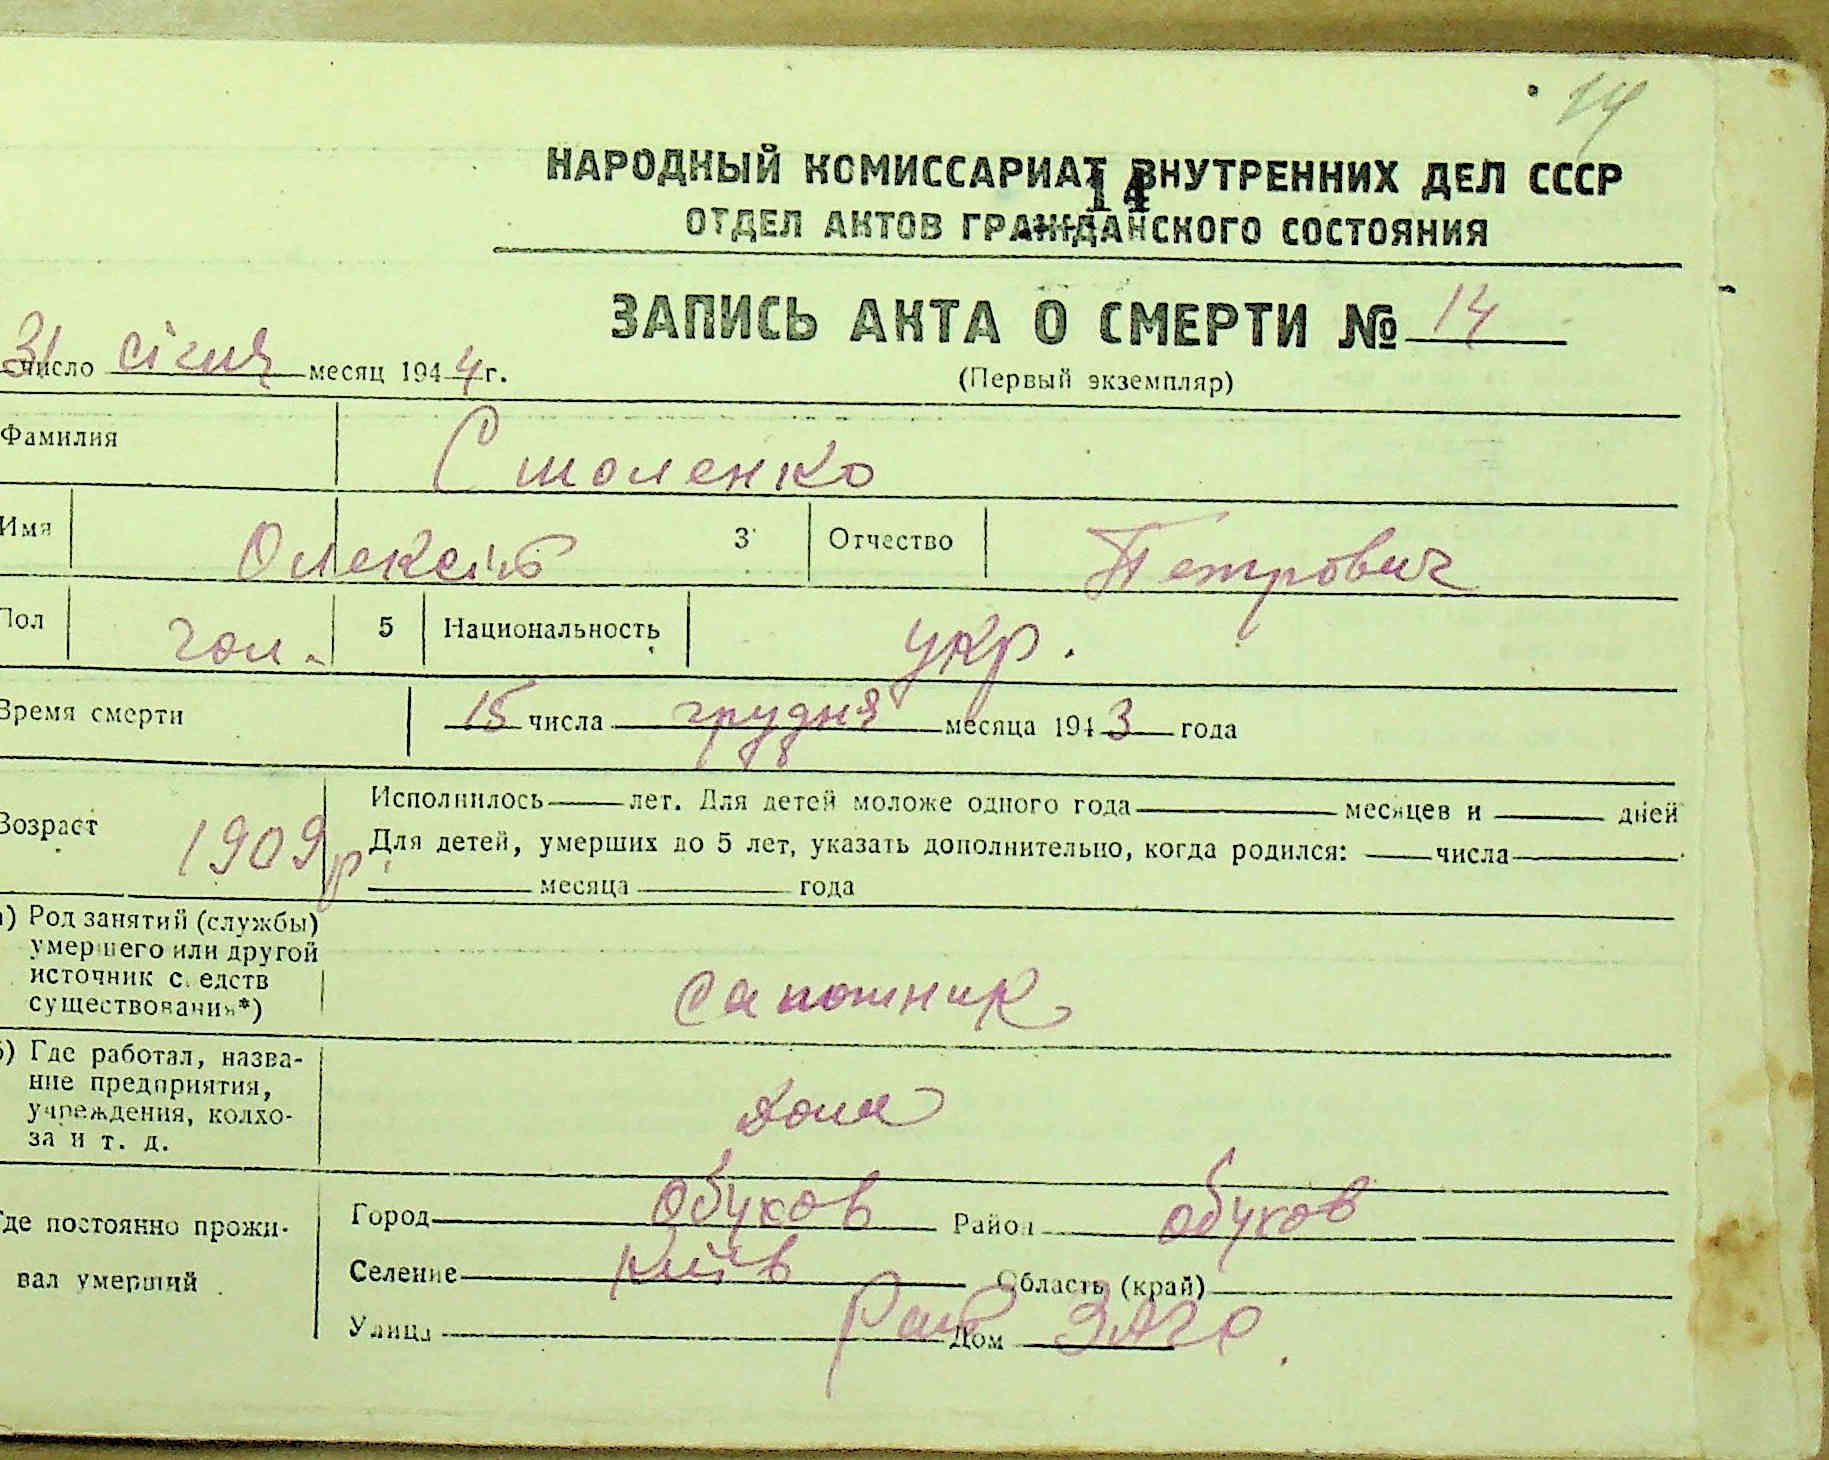 14
НАРОДНЫЙ КОМИССАРИАТ ВНУТРЕННИХ ДЕЛ СССР
14
ОТДЕЛ АКТОВ ГРАЖДАНСКОГО СОСТОЯНИЯ
ЗАПИСЬ АКТА О СМЕРТИ № 14
31 число січня месяц 1944 г.
(Первый экземпляр)
Фамилия Столенко
Имя Олексій 3 Отчество Петрович
Пол чол. 5 Национальность укр.
Время смерти 15 числа грудня месяца 1943 года
Исполнилось лет. Для детей моложе одного года месяцев и дней
Возраст 1909 р. Для детей, умерших до 5 лет, указать дополнительно, когда родился: числа
месяца года
а) Род занятий (службы)
умершего или другой
источник средств
существования*)
сапожник
б) Где работал, назва-
ние предприятия,
учреждения, колхо-
за и т. д.
дома
Где постоянно прожи-
вал умерший
Город Обухов Район Обухов
Селение Київ Область (край)
Улица Дом